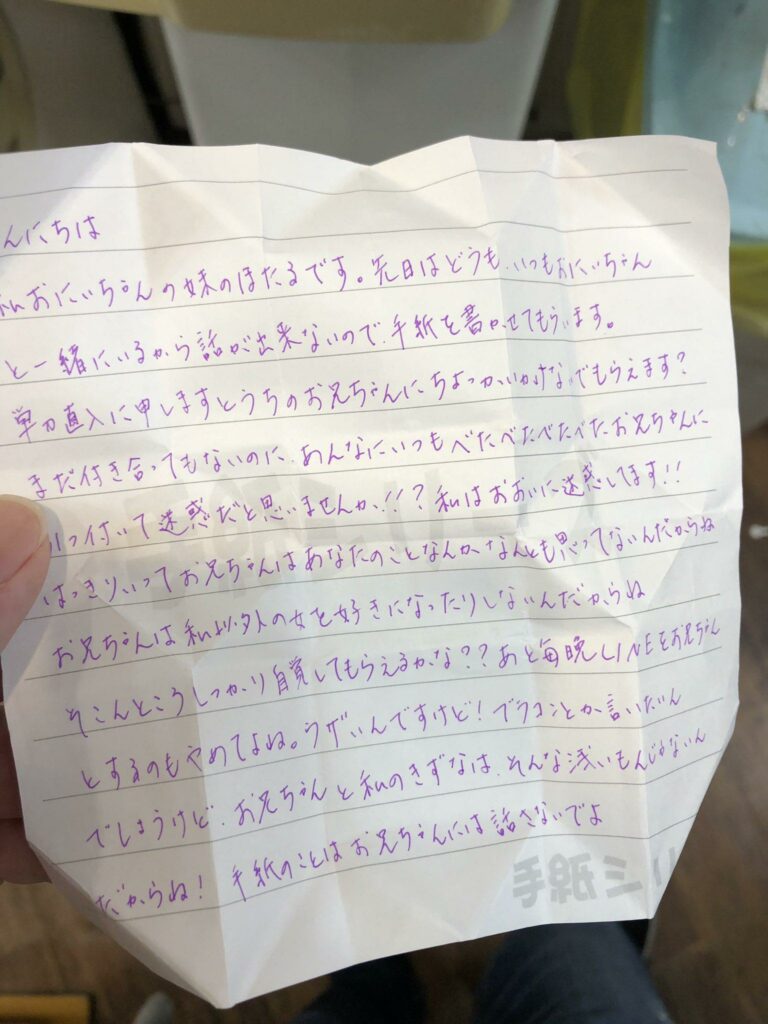 んにちは
私おにいちゃんの妹のほたるです。先日はどうも、いつもおにいちゃん
と一緒にいるから話が出来ないので、手紙を書かせてもらいます。
単刀直入に申しますとうちのお兄ちゃんにちょっかいかけないでもらえます?
まだ付き合ってもないのに、あんなにいつもべたべたべたべたお兄ちゃんに
引っ付いて迷惑だと思いませんか!!?私はおおいに迷惑してます!!
はっきりいってお兄ちゃんはあなたのことなんかなんとも思ってないんだからね
お兄ちゃんは私以外の女を好きになったりしないんだからね
そこんところしっかり自覚してもらえるかな??あと毎晩LINEをお兄ちゃん
とするのもやめてよね。うザいんですけど!ブラコンとか言いだいん
でしょうけど、お兄ちゃんと私のきずなは、そんな浅いもんじゃないん
だからね!手紙のことはお兄ちゃんには話さないでよ